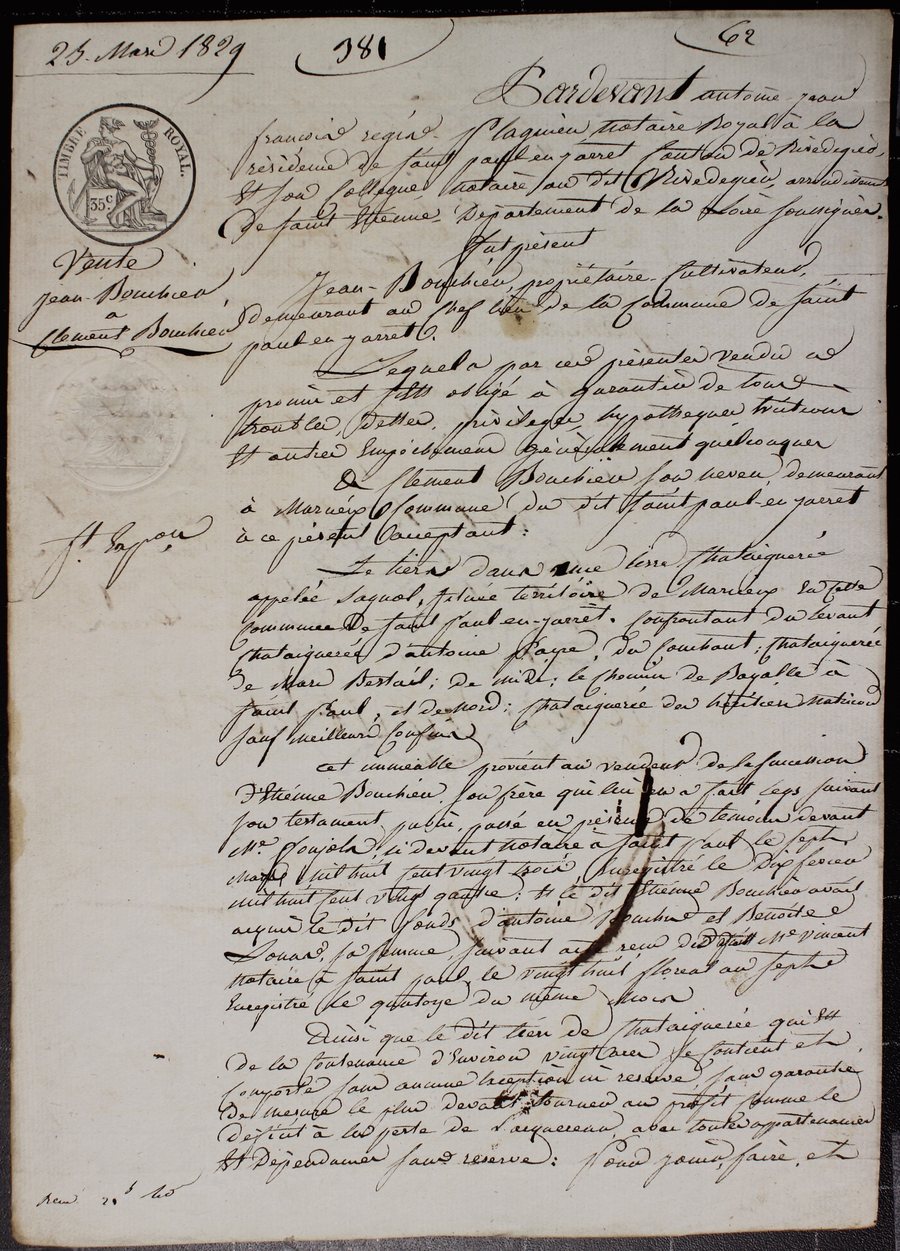 25. Mars 1829
381
62
TIMBRE ROYAL.
35 c
Vente
jean Bouchieu
a
Clement Bouchieu
Pardevant antoine jean
françois regis notaire Royal à la
résidence de saint paul en jarret Canton de Rivedegier,
et son Collegue notaire au dit Rivedegier, arrondissement
de saint Etienne Département de la Loire soussignés.
fut présent
Jean Bouchieu, propriétaire Cultivateur,
demeurant au Chef lieu de la Commune de saint
paul en jarret.
Lequel a par ces présentes vendu et
promis et obligé à garantir de tous
troubles, dettes, privileges, hypotheques
et autres Empêchemens généralement quelconques
à Clement Bouchieu son neveu, demeurant
à Marieux Commune du dit saint paul en jarret
à ce présent et acceptant:
Le tiers dans une terre Chataigneree
appelée Sagnol, située territoire de Marieux en cette
Commune de saint Paul en jarret. Confrontant du levant
Chataigneree d'antoine Payre, du Couchant; Chataigneree
de Marc Bertail; de midi; le Chemin de Boyalle à
saint Paul, et de nord; Chataigneree des héritiers
sauf meilleurs Confins
cet immeuble provient au vendeur de la succession
d'Etienne Bouchieu, son frère qui lui en a fait legs suivant
son testament public, passé en présence de temoins devant
Me Gonzola, ci devant notaire à saint Paul le sept
Mars mil huit cent vingt trois, Enregistré le Dix fevrier
mil huit cent vingt quatre; et le dit Etienne Bouchieu avait
acquis le dit fonds d'antoine et Benoite
sa femme, suivant acte reçu du dit Me vincent
notaire à saint paul, le vingt huit floreal an sept
Enregistré le quatorze du même Mois
Ainsi que le dit tiers de Chataigneree qui est
de la Contenance d'Environ vingt ares se Contient et
Comporte sans aucune exception ni reserve, sans garantie
de mesure le plus devant tourner au profit comme le
déficit à la perte de l'acquereur, avec toutes appartenances
et Dépendances sans reserve: Pour jouir, faire, et